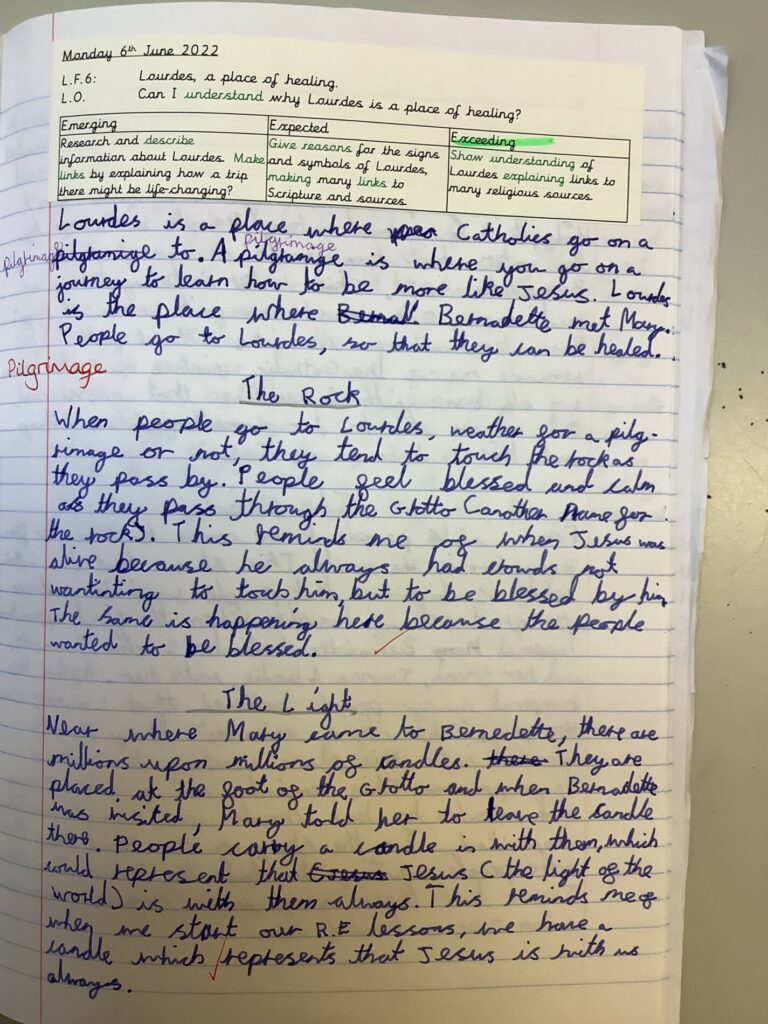 Monday 6th June 2022
L.F.6: Lourdes, a place of healing.
L.O. Can I understand why Lourdes is a place of healing?
Emerging
Research and describe
information about Lourdes. Make
links by explaining how a trip
there might be life-changing?
Expected
Give reasons for the signs
and symbols of Lourdes,
making many links to
Scripture and sources.
Exceeding
Show understanding of
Lourdes explaining links to
many religious sources.
Lourdes is a place where Catholics go on a
pilgrimage
pilgramige to. A pilgramige is where you go on a
pilgrimage
journey to learn how to be more like Jesus. Lourdes
is the place where Bernadette met Mary.
People go to Lourdes, so that they can be healed.
Pilgrimage
The Rock
When people go to Lourdes, weather for a pilg-
rimage or not, they tend to touch the rock as
they pass by. People feel blessed and calm
as they pass through the Grotto (another name for
the rock). This reminds me of when Jesus was
alive because he always had crowds not
wantinting to touch him, but to be blessed by him
The same is happening here because the people
wanted to be blessed.
The Light
Near where Mary came to Bernedette, there are
millions upon millions of candles. there They are
placed at the foot of the Grotto and when Bernadette
was visited, Mary told her to leave the candle
there. People carry a candle is with them, which
would represent that (Jesus Jesus (the light of the
world) is with them always. This reminds me of
when we start our R.E lessons, we have a
candle which represents that Jesus is with us
always.